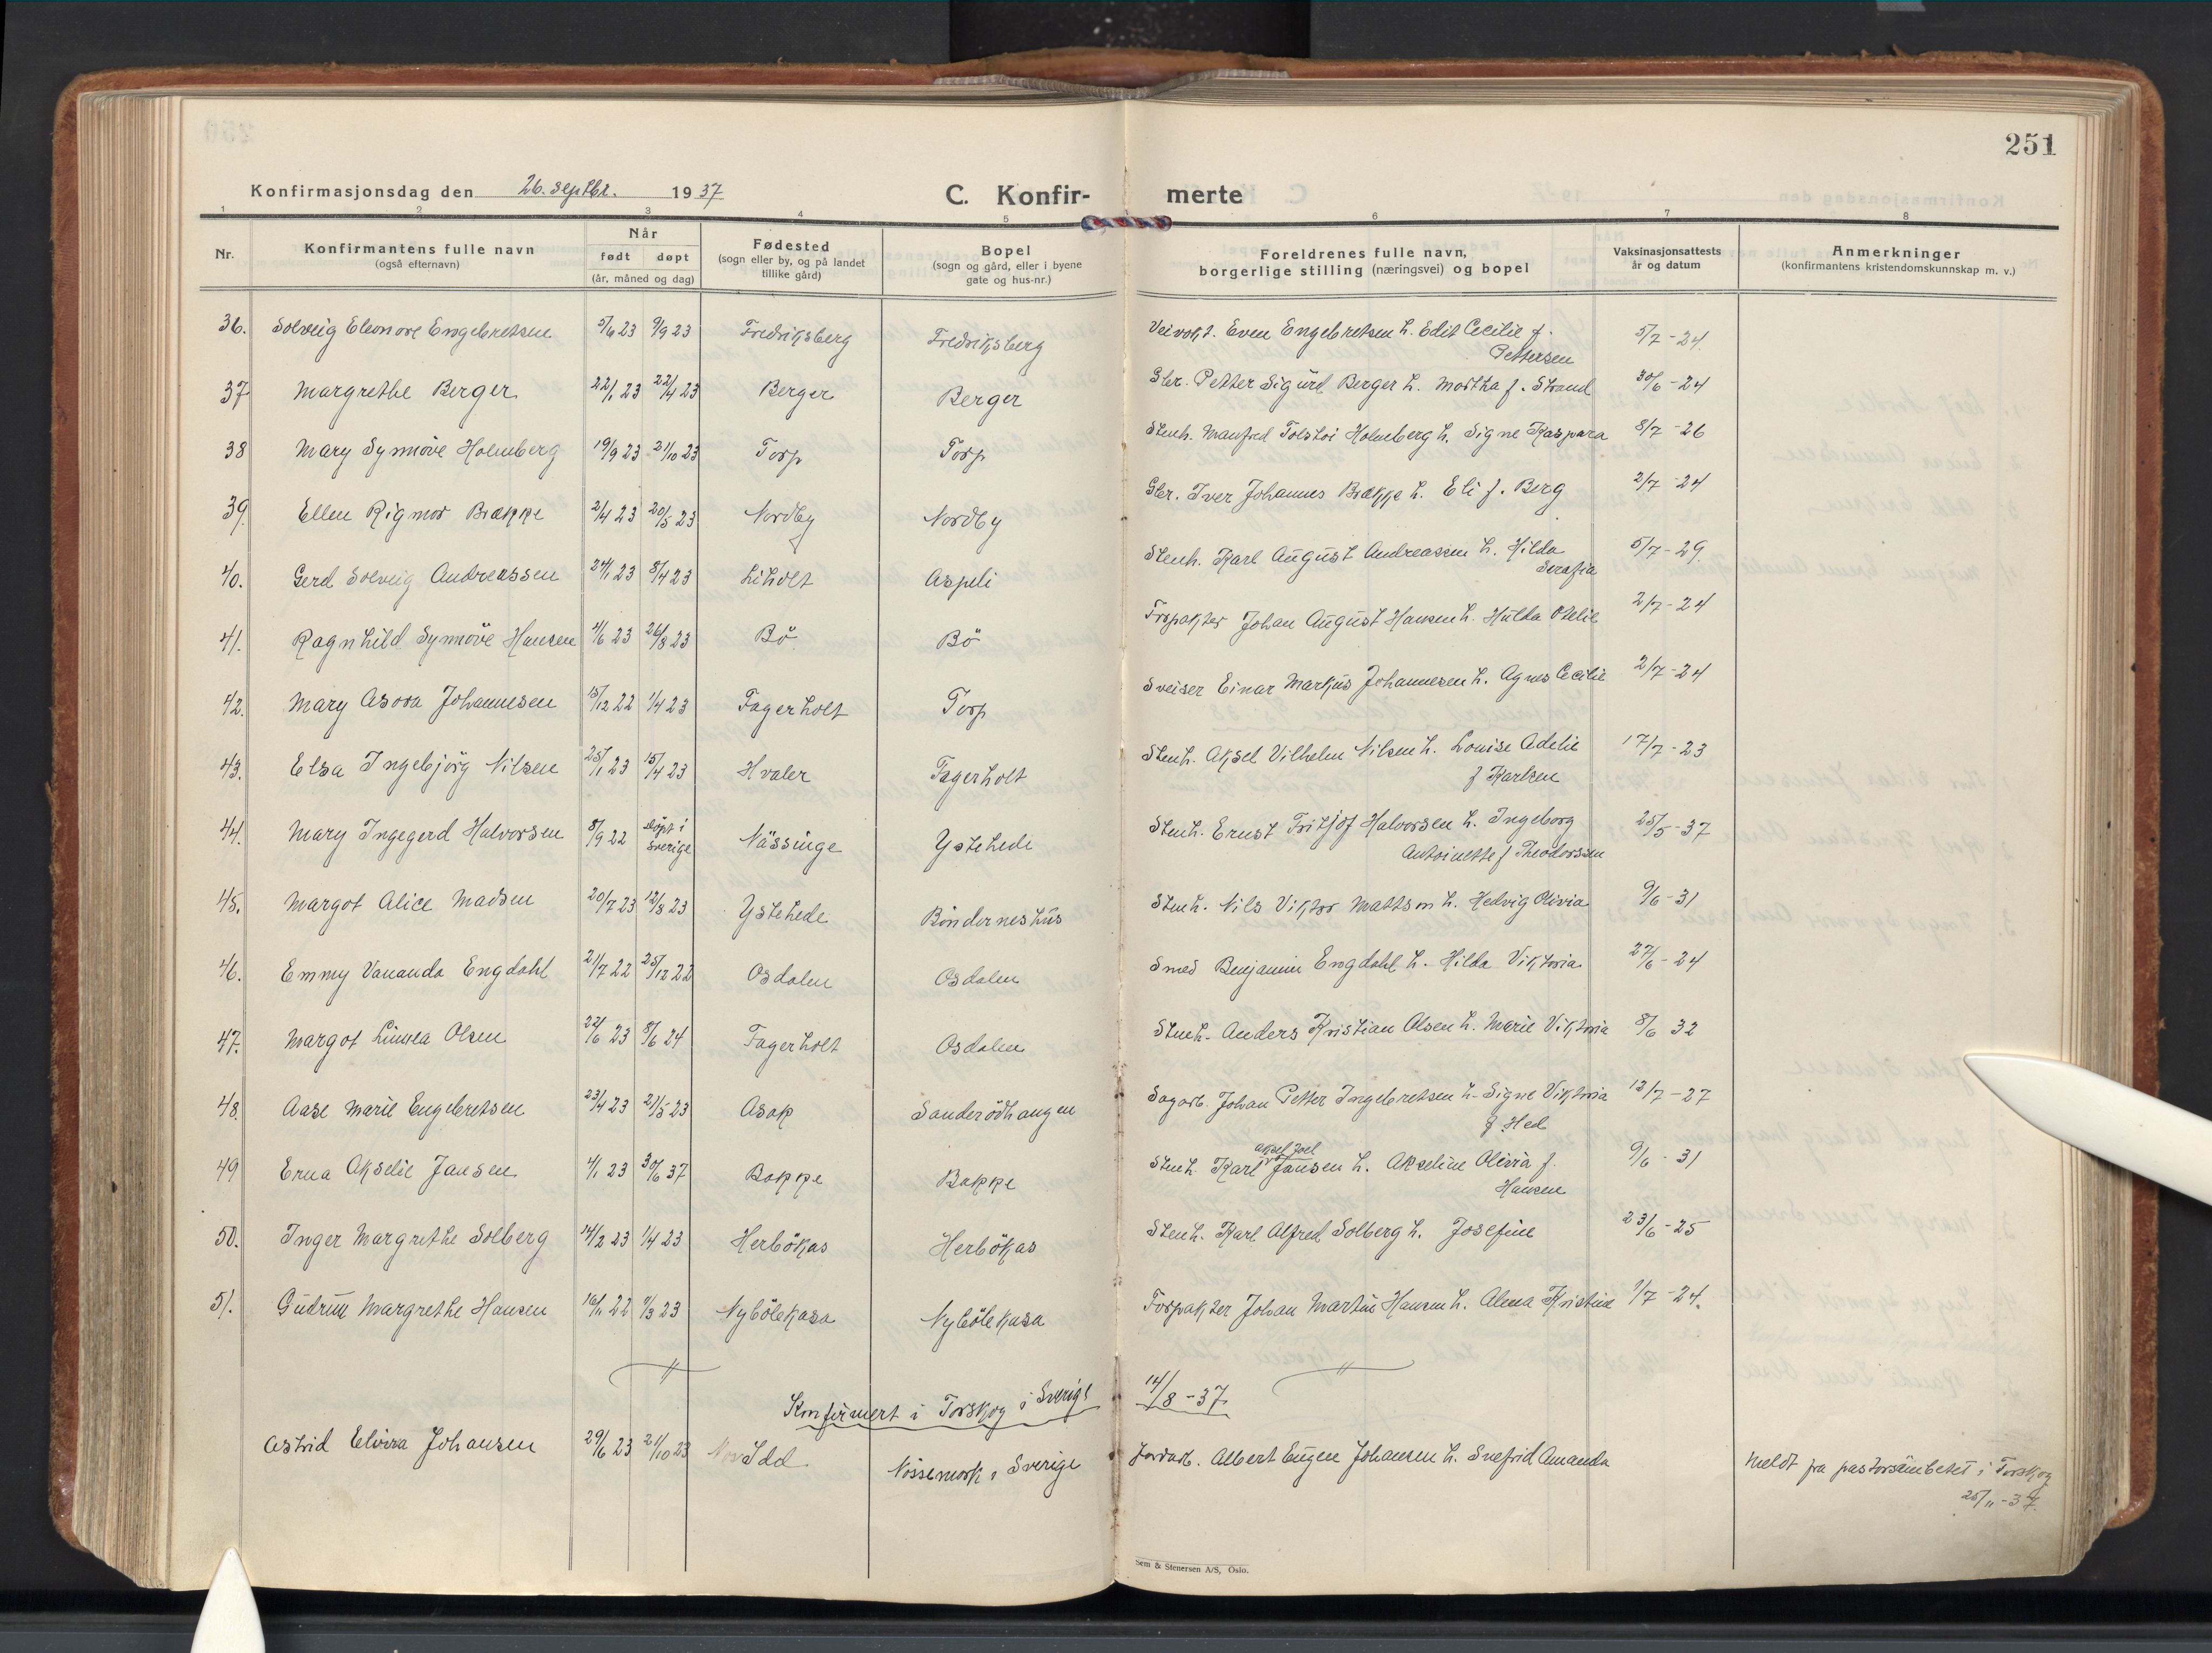 251
Konfirmasjonsdag den 26. septbr. 1937
C. Konfir-merte
1 2 3 4 5 6 7 8
Nr.
Konfirmantens fulle navn
(også efternavn)
Når
født døpt
(år, måned og dag)
Fødested
(sogn eller by, og på landet
tillike gård)
Bopel
(sogn og gård, eller i byene
gate og hus-nr.)
Foreldrenes fulle navn,
borgerlige stilling (næringsvei) og bopel
Vaksinasjonsattests
år og datum
Anmerkninger
(konfirmantens kristendomskunnskap m. v.)
36. Solveig Eleonore Engebretsen 5/6 23 9/9 23 Fredriksberg Fredriksberg Veivokt. Even Engebretsen h. Edit Cecilie f. 5/7-24
Pettersen
37 Margrethe Berger 22/1 23 22/4 23 Berger Berger Gbr. Petter Sigurd Berger h. Martha f. Strand 30/6-24
38 Mary Synnöve Holmberg 19/9 23 21/10 23 Torp Torp Stenh. Manfred Tolstoi Holmberg h. Signe Kaspara 8/7-26
39. Ellen Rigmor Brække 2/4 23 20/5 23 Nordby Nordby Gbr. Iver Johannes Brække h. Eli f. Berg 2/7-24
40. Gerd Solveig Andreassen 24/1 23 8/4 23 Liholt Aspeli Stenh. Karl August Andreassen h. Hilda 5/7-29.
Serafia
41. Ragnhild Synnöve Hansen 4/6 23 26/8 23 Bö Bö Forpakter Johan August Hansen h. Hulda Otelie 2/7-24
42. Mary Asora Johannesen 15/12 22 1/4 23 Fagerholt Torp Sveiser Einar Markus Johannesen h. Agnes Cecilie 2/7-24
43. Elsa Ingebjörg Nilsen 25/1 23 15/4 23 Hvaler Fagerholt Stenh. Aksel Vilhelm Nilsen h. Louise Adelie 17/7-23
f Karlsen
44. Mary Ingegerd Halvorsen 8/9 22 döpt i Sverige Nässinge Ystehede Stenh. Ernst Fritjof Halvorsen h. Ingeborg 25/5-37
Antoinette f Theodorssen
45. Margot Alice Madsen 20/7 23 12/8 23 Ystehede Bönderneshus Stenh. Nils Viktor Mattson h. Hedvig Olivia 9/6-31
46. Emmy Vananda Engdahl 21/7 22 25/12 22 Osdalen Osdalen Smed Benjamin Engdahl h. Hilda Viktoria 27/6-24
47. Margot Linnea Olsen 22/6 23 8/6 24 Fagerholt Osdalen Stenh. Anders Kristian Olsen h. Marie Viktoria 8/6 32
48. Aase Marie Engebretsen 23/4 23 21/5 23 Asak Sanderödhaugen Sagarb. Johan Petter Ingebretsen h. Signe Viktoria 13/7-27
f. Hed
49 Erna Akselie Jansen 4/1 23 30/6 37 Bakke Bakke Stenh. Karl Aksel Joel Jansen h. Akseline Olivia f. 9/6-31
Hansen
50. Inger Margrethe Solberg 14/2 23 1/4 23 Herbökas Herbökas Stenh. Karl Alfred Solberg h. Josefine 23/6-25
51. Gudrun Margrethe Hansen 16/11 22 /3 23 Nybölekasa Nybölekasa Forpakter Johan Martin Hansen h. Alma Kristine 1/7-24.
Konfirmert i Torskog i Sverige 14/8-37
Astrid Elvira Johansen 29/6 23 21/10 23 Idd Nössemark i Sverige Jordarb. Albert Eugen Johansen h. Svafrid Amanda Meldt fra pastorsembetet i Torskog
25/11-37.
Sem & Stenersen A/S, Oslo.